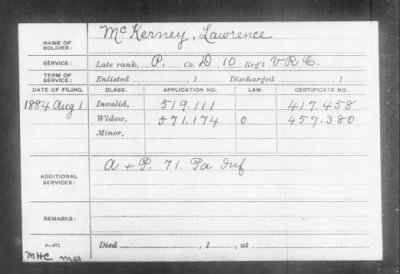 NAME OF SOLDIER: McKerney, Lawrence
SERVICE: Late rank, P. Co. D, 10 Reg't V R C.
TERM OF SERVICE: Enlisted , 1 Discharged , 1
DATE OF FILING. CLASS. APPLICATION NO. LAW. CERTIFICATE NO.
1884 Aug 1 Invalid, 519.111 417.458
Widow, 571.174 0 457.380
Minor,
ADDITIONAL SERVICES: A + P. 71. Pa Inf
REMARKS:
Died , 1 , at
MHC